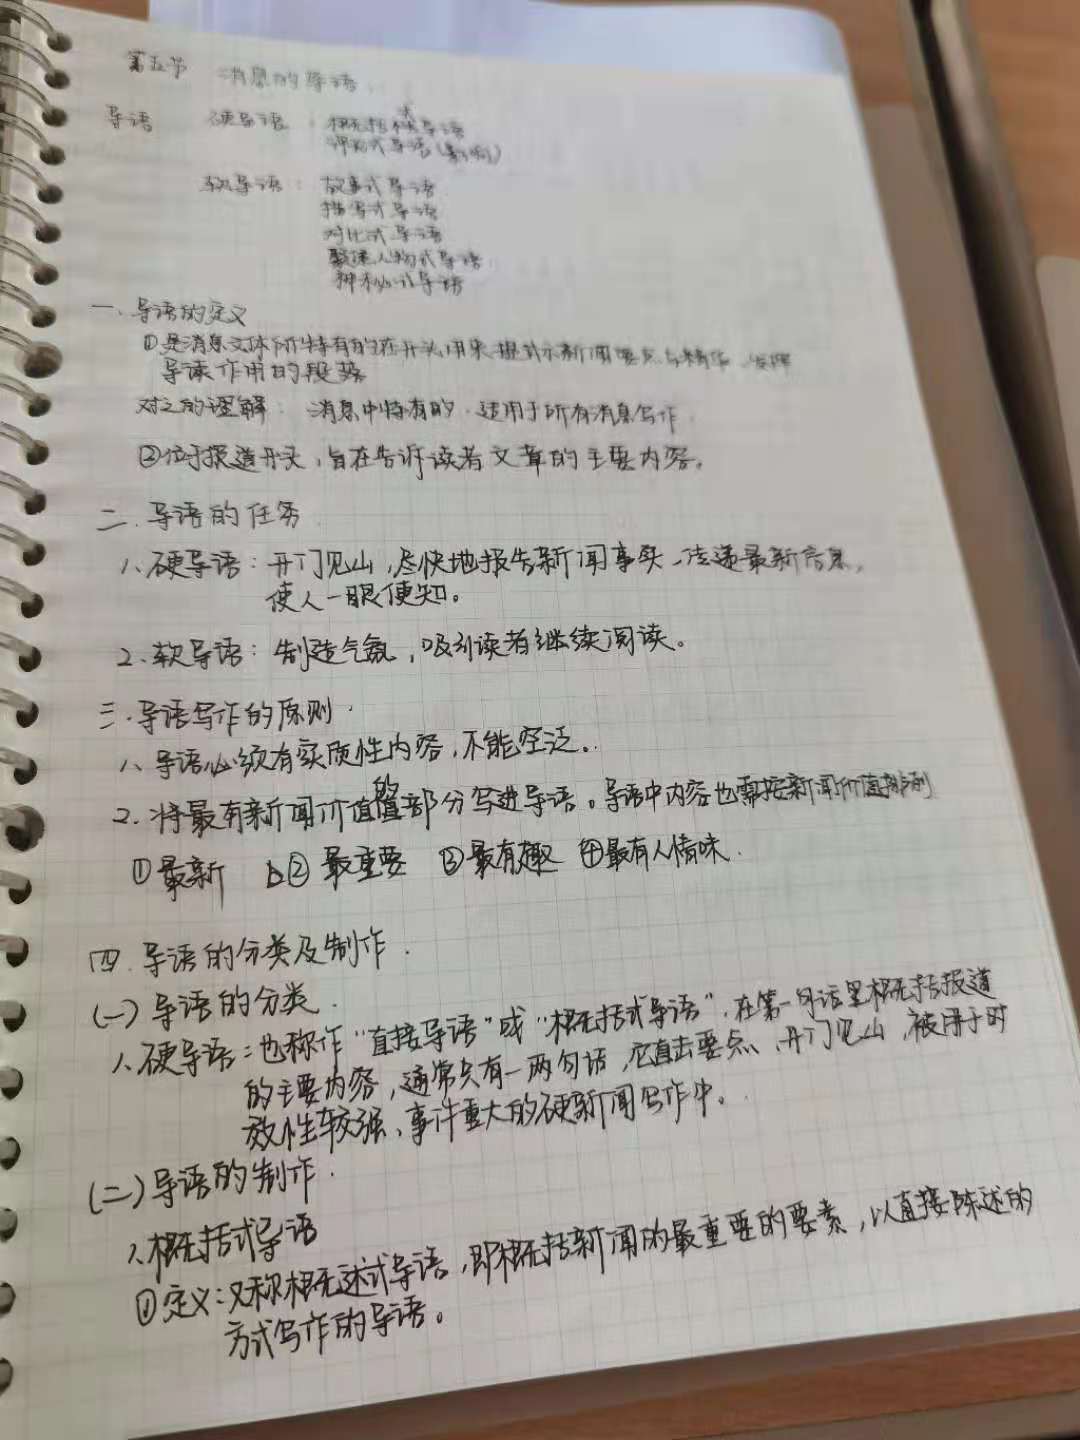 第五节 消息的导语
导语 硬导语：概括式导语
评论式导语
软导语：故事式导语
描写式导语
对比式导语
人物式导语
神秘式导语
一、导语的定义
①是消息文体所特有的在开头用来提示新闻要点与精华、发挥
导读作用的段落
对之的理解：消息中特有的、适用于所有消息写作
②位于报道开头，旨在告诉读者文章的主要内容。
二、导语的任务
1、硬导语：开门见山，尽快地报告新闻事实、传递最新信息，
使人一眼便知。
2、软导语：制造气氛，吸引读者继续阅读。
三、导语写作的原则
1、导语必须有实质性内容，不能空泛。
2、将最有新闻价值的部分写进导语。导语中内容也需按新闻价值排列
①最新 ②最重要 ③最有趣 ④最有人情味
四、导语的分类及制作
(一)导语的分类
1、硬导语：也称作“直接导语”或“概括式导语”，在第一句话里概括报道
的主要内容，通常只有一两句话，它直击要点、开门见山，被用于时
效性较强、事件重大的硬新闻写作中。
(二)导语的制作
1、概括式导语
①定义：又称概述式导语，即概括新闻的最重要的要素，以直接陈述的
方式写作的导语。